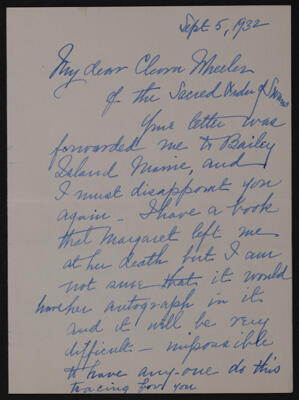 Sept 5, 1932
My dear Cleora Wheeler
of the Sacred Order of
Your letter was
forwarded me to Bailey
Island Maine, and
I must disappoint you
again - I have a book
that Margaret left me
at her death but I am
not sure that it would
have her autograph in it
and it will be very
difficult - impossible
to have any-one do this
tracing for you